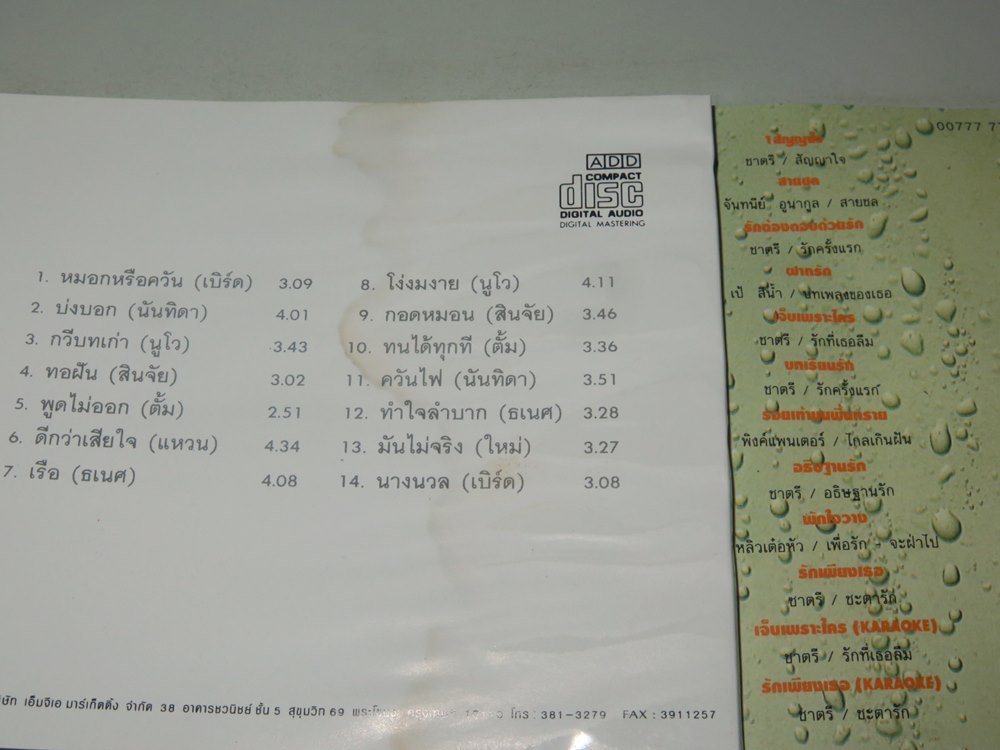 ADD
COMPACT
disc
DIGITAL AUDIO
DIGITAL MASTERING
1. หมอกหรือควัน (เบิร์ด) 3.09
2. บ่งบอก (นันทิดา) 4.01
3. กวีบทเก่า (นูโว) 3.43
4. ทอฝัน (สินจัย) 3.02
5. พูดไม่ออก (ตั้ม) 2.51
6. ดีกว่าเสียใจ (แหวน) 4.34
7. เรือ (ธเนศ) 4.08
8. โง่งมงาย (นูโว) 4.11
9. กอดหมอน (สินจัย) 3.46
10. ทนได้ทุกที (ตั้ม) 3.36
11. ควันไฟ (นันทิดา) 3.51
12. ทำใจลำบาก (ธเนศ) 3.28
13. มันไม่จริง (ใหม่) 3.27
14. นางนวล (เบิร์ด) 3.08
เอ็มจีเอ มาร์เก็ตติ้ง จำกัด 38 อาคารชวนิชย์ ชั้น 5 สุขุมวิท 69 โทร : 381-3279 FAX : 3911257
00777
ชาตรี / สัญญาใจ
สายชล
จันทนีย์ อูนากูล / สายชล
รักต้องตอบด้วยรัก
ชาตรี / รักครั้งแรก
ฝากรัก
เป้ สีน้ำ / บทเพลงของเธอ
เจ็บเพราะใคร
ชาตรี / รักที่เธอลืม
บทเรียนรัก
ชาตรี / รักครั้งแรก
รอยเท้าบนผืนทราย
พิงค์แพนเตอร์ / ไกลเกินฝัน
อธิษฐานรัก
ชาตรี / อธิษฐานรัก
พักใจวาง
หลิวเต๋อหัว / เพื่อรัก - จะฝ่าไป
รักเพียงเธอ
ชาตรี / ชะตารัก
เจ็บเพราะใคร (KARAOKE)
ชาตรี / รักที่เธอลืม
รักเพียงเธอ (KARAOKE)
ชาตรี / ชะตารัก